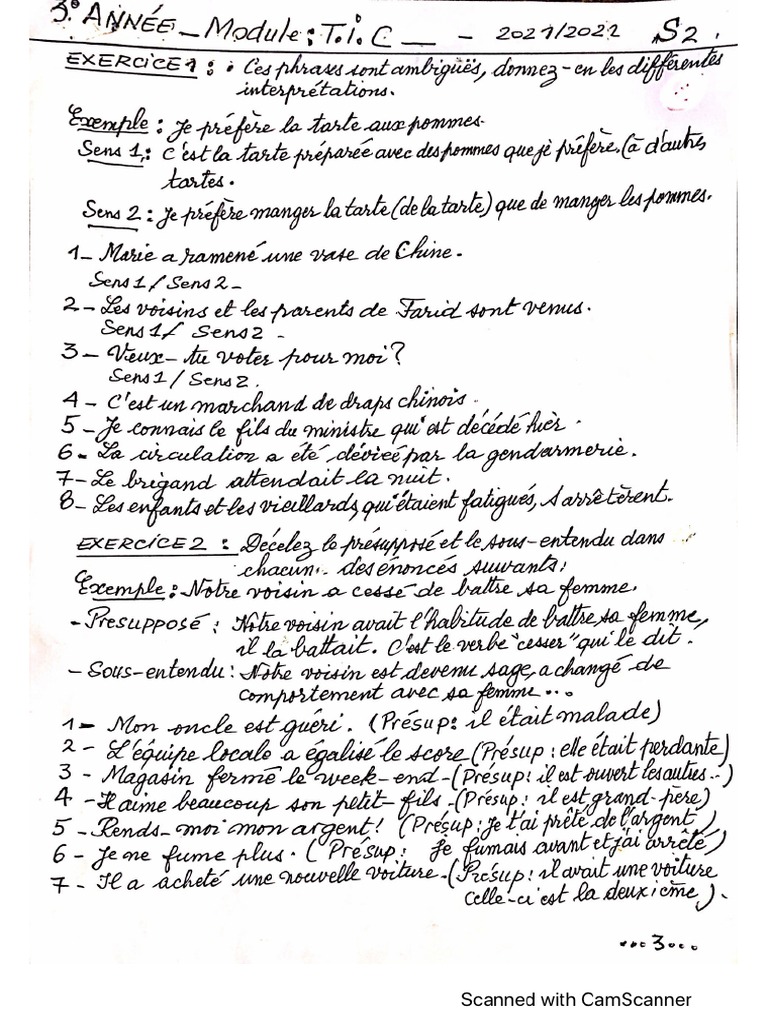 3° ANNÉE - Module: T.i.C - - 2021/2022 S2.
EXERCICE 1 : • Ces phrases sont ambiguës, donnez-en les différentes
interprétations.
Exemple : Je préfère la tarte aux pommes.
Sens 1 : C'est la tarte préparée avec des pommes que je préfère (à d'autres
tartes.
Sens 2 : Je préfère manger la tarte (de la tarte) que de manger les pommes.
1- Marie a ramené une vase de Chine.
Sens 1 / Sens 2 -
2 - Les voisins et les parents de Farid sont venus.
Sens 1 / Sens 2 -
3 - Veux-tu voter pour moi ?
Sens 1 / Sens 2.
4 - C'est un marchand de draps chinois.
5 - Je connais le fils du ministre qui est décédé hier.
6 - La circulation a été déviée par la gendarmerie.
7 - Le brigand attendait la nuit.
8 - Les enfants et les vieillards, qui étaient fatigués, s'arrêtèrent.
EXERCICE 2 : Décelez le présupposé et le sous-entendu dans
chacun des énoncés suivants :
Exemple : Notre voisin a cessé de battre sa femme.
- Présupposé : Notre voisin avait l'habitude de battre sa femme,
il la battait. C'est le verbe "cesser" qui le dit.
- Sous-entendu : Notre voisin est devenu sage, a changé de
comportement avec sa femme ...
1 - Mon oncle est guéri. (Présup : il était malade)
2 - L'équipe locale a égalisé le score (Présup : elle était perdante)
3 - Magasin fermé le week-end - (Présup : il est ouvert les autres..)
4 - Il aime beaucoup son petit-fils - (Présup : il est grand-père)
5 - Rends-moi mon argent ! (Présup : je t'ai prêté de l'argent)
6 - Je ne fume plus. (Présup : Je fumais avant et j'ai arrêté)
7 - Il a acheté une nouvelle voiture - (Présup : il avait une voiture
celle-ci est la deuxième).
...3...
Scanned with CamScanner